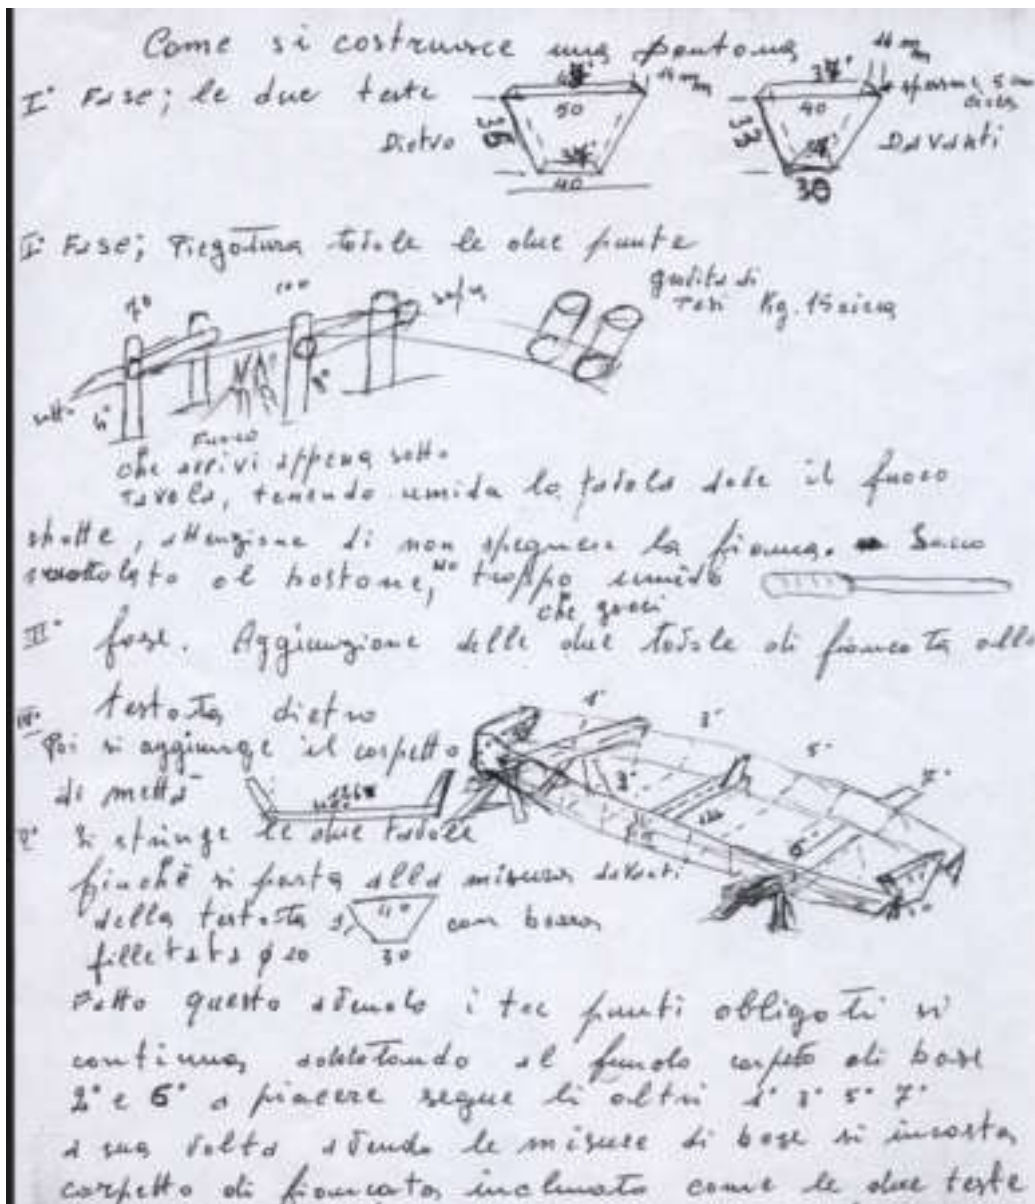 Come si costruisce una pontona
I° Fase; le due teste
Dietro
50
36
40
14 m/m
40
33
30
14 m/m
Davanti
I° Fase; Piegatura tavole le due punte
sopra
sotto
Fuoco
Kg. 15 circa
che arrivi appena sotto
tavola, tenendo umida la tavola dove il fuoco
sbatte, attenzione di non spegnere la fiamma. Sacco
al bastone, no troppo umido
che gocci
II° fase. Aggiunzione delle due tavole di fiancata alla
testata dietro
Poi si aggiunge il corpetto
di mettà
Si stringe le due tavole
finchè si porta alla misura davanti
della testata 40 con barra
30
filettata ø 20
Fatto questo avendo i tre punti obligati si
continua adattando al fondo corpeto di base
2° e 6° a piacere segue li altri 1° 3° 5° 7°
a sua volta avendo le misure di base si incasta
corpetto di fiancata inclinato come le due teste
1°
3°
5°
7°
3°
6°